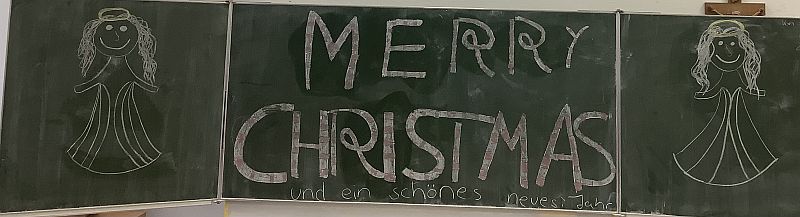 MERRY
CHRISTMAS
und ein schönes neues Jahr